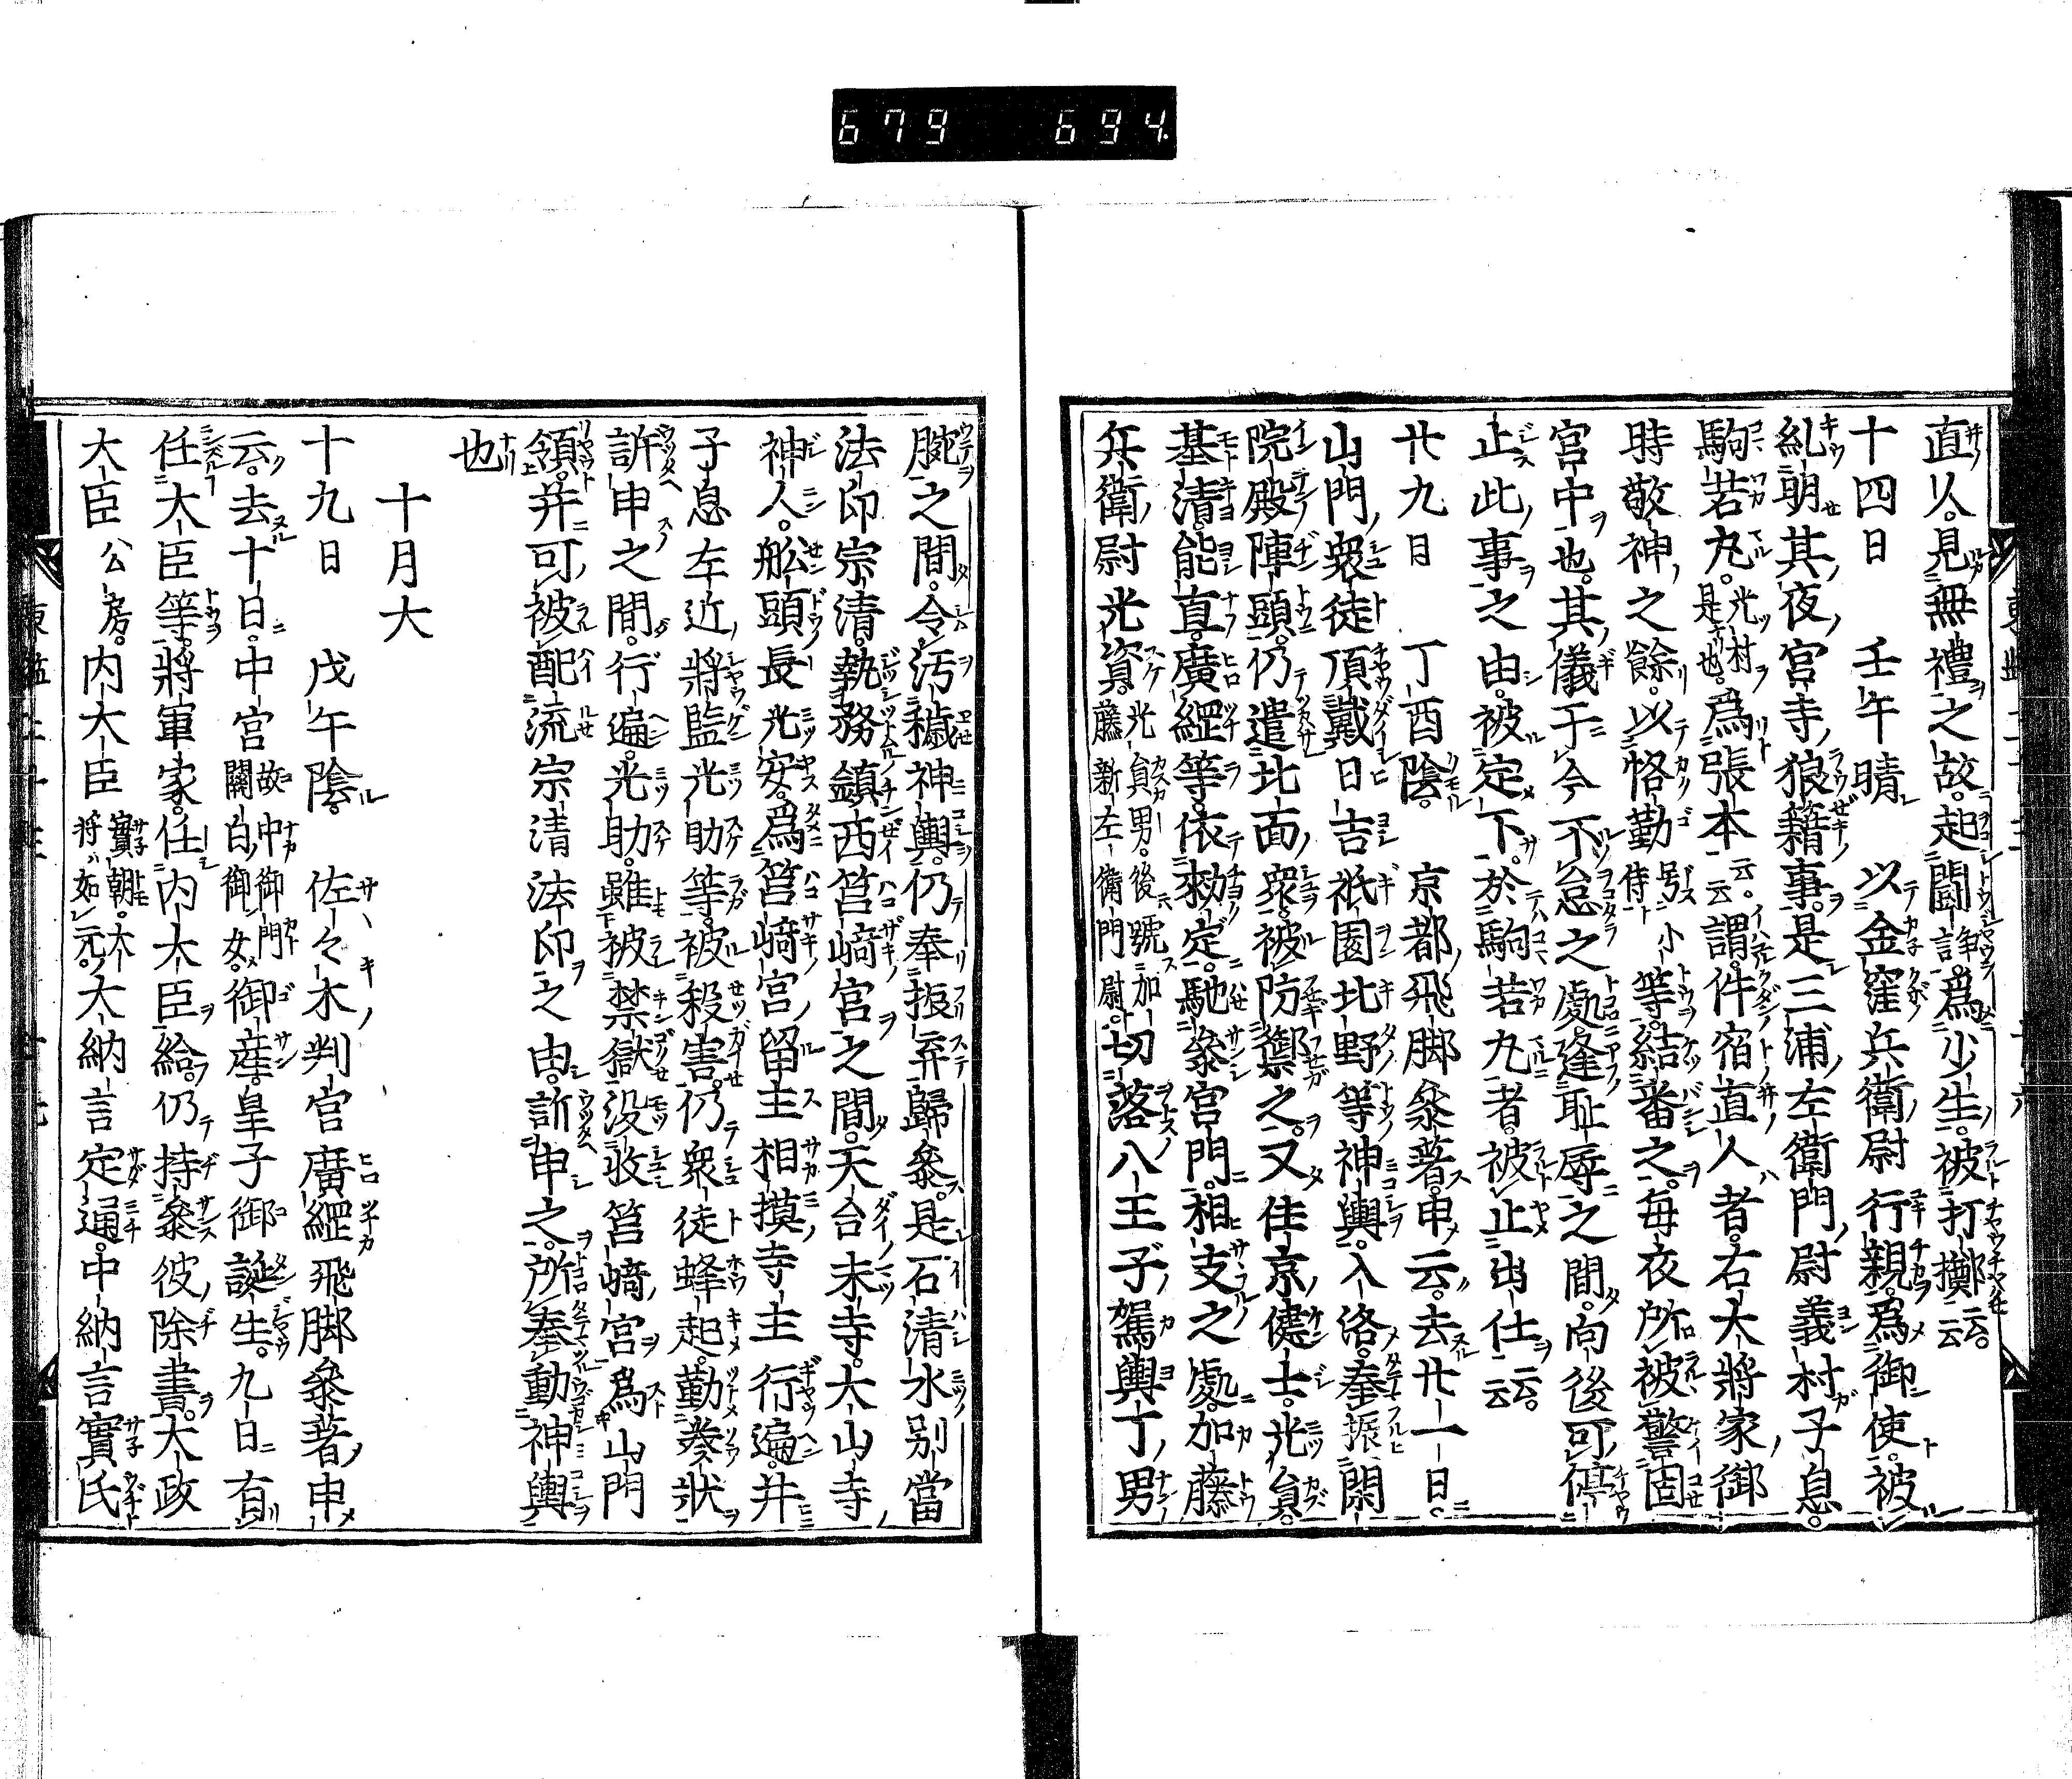 679 694
直人見無禮之故起鬪諍爲少生被打擲云云
十四日 壬午晴 以金窪兵衛尉行親爲御使被
糺明其夜宮寺狼藉事是三浦左衛門尉義村子息
駒若丸光村是也爲張本云云謂件宿直人者右大將家御
時敬神之餘以恪勤号小侍等結番之毎夜所被警固
宮中也其儀于今不怠之處逢恥辱之間向後可停
止此事之由被定下於駒若丸者被止出仕云云
廿九日 丁酉陰 京都飛脚參著申云去廿一日
山門衆徒頂戴日吉祇園北野等神輿入洛奉振閑
院殿陣頭仍遣北面衆被防禦之又住京健士光員
基清能直廣綱等依勅定馳參宮門相支之處加藤
兵衛尉光資光員男後號加藤新左衛門尉切落八王子駕輿丁男
腕之間令汚穢神輿仍奉振弃歸參是石清水別當
法印宗清執務鎭西筥崎宮之間天台末寺大山寺
神人船頭長光安爲筥崎宮留主相摸寺主行遍并
子息左近將監光助等被殺害仍衆徒蜂起勤奏狀
訴申之間行遍光助雖被禁獄没收筥崎宮爲山門
領并可被配流宗清法印之由訴申之所奉動神輿
也
十月大
十九日 戊午陰 佐々木判官廣綱飛脚參著申
云去十日中宮故中御門關白御女御産皇子御誕生九日有
任大臣等將軍家任内大臣給仍持參彼除書大政
大臣公房内大臣實朝大將如元大納言定通中納言實氏